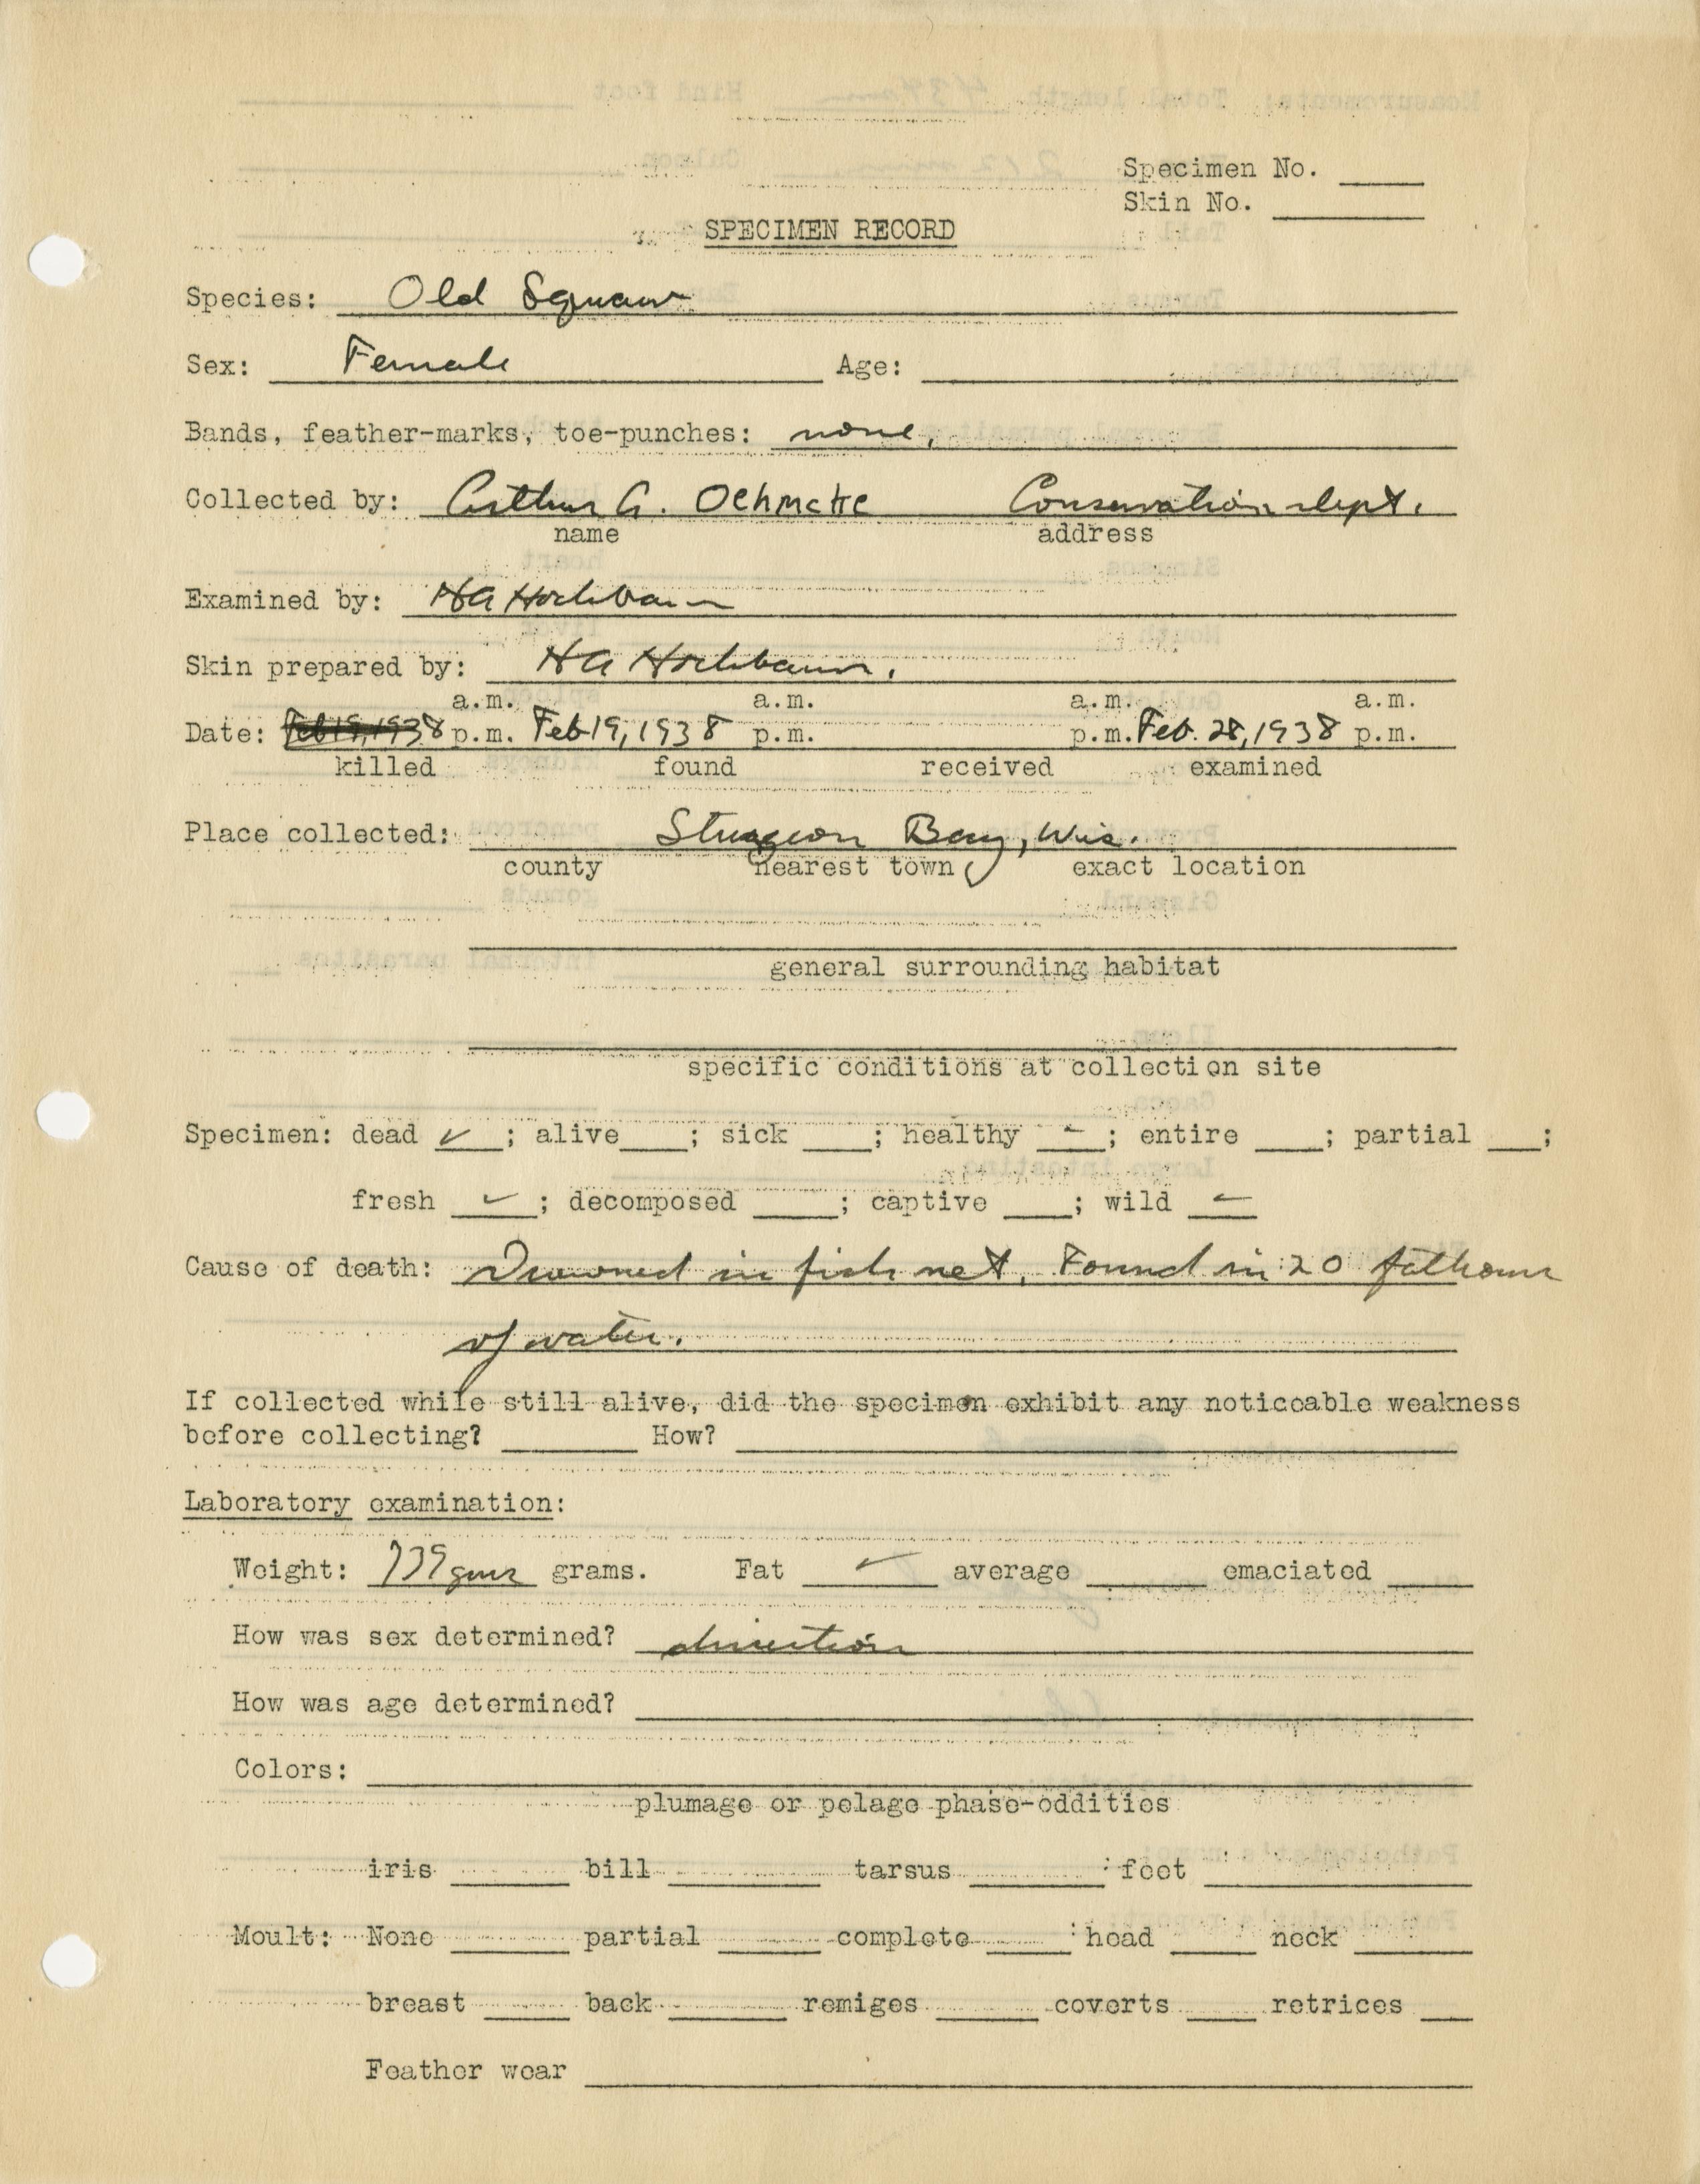 Specimen No. ____
Skin No. ____
SPECIMEN RECORD
Species: Old Squaw
Sex: Female Age: ____
Bands, feather-marks, toe-punches: none.
Collected by: Arthur A. Oehmcke Conservation dept.
name address
Examined by: HA Hochbaum
Skin prepared by: HA Hochbaum.
a.m. a.m. a.m. a.m.
Date: Feb 19, 1938 p.m. Feb 19, 1938 p.m. p.m. Feb. 28, 1938 p.m.
killed found received examined
Place collected: Sturgeon Bay, Wis.
county nearest town exact location
general surrounding habitat
specific conditions at collection site
Specimen: dead ✓; alive ____; sick ____; healthy ✓; entire ____; partial ____;
fresh ✓; decomposed ____; captive ____; wild ✓
Cause of death: Drowned in fish net. Found in 20 fathoms
of water.
If collected while still alive, did the specimen exhibit any noticeable weakness
before collecting? ____ How? ____
Laboratory examination:
Weight: 739 gms grams. Fat ✓ average ____ emaciated ____
How was sex determined? dissection
How was age determined? ____
Colors: ____
plumage or pelage phase-oddities
iris ____ bill ____ tarsus ____ foot ____
Moult: None ____ partial ____ complete ____ head ____ neck ____
breast ____ back ____ remiges ____ coverts ____ retrices ____
Feather wear ____